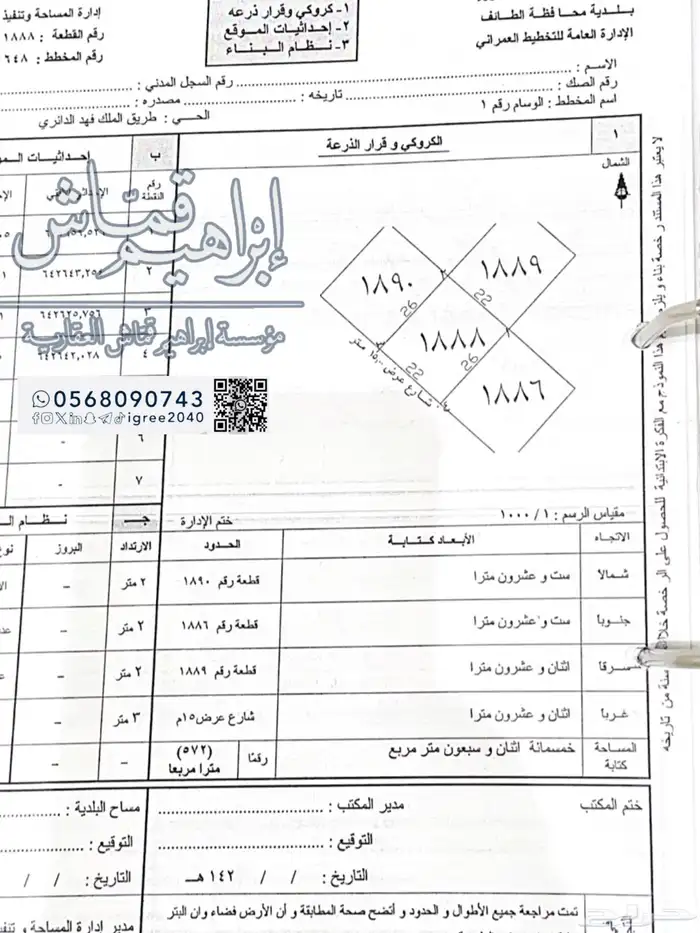 بلدية محافظة الطائف
الإدارة العامة للتخطيط العمراني
١- كروكي وقرار ذرعه
٢- إحداثيات الموقع
٣- نظام البناء
إدارة المساحة وتنفيذ
رقم القطعة : ١٨٨٨
رقم المخطط : ٦٤٨
الاسم :
رقم الصك : تاريخه : رقم السجل المدني :
مصدره :
اسم المخطط : الوسام رقم ١
الحي : طريق الملك فهد الدائري
١
الكروكي و قرار الذرعة
ب
الشمال
رقم النقطة
١٨٩٠
١٨٨٩
١٨٨٨
١٨٨٦
22
26
26
22
شارع عرض ١٥,٠٠ متر
٢
٦٤٢٦٤٣,٢٥
٣
٦٤٢٦٢٥,٧٥٦
٤
٦٤٢٦٤٢,٠٢٨
٦
-
٧
-
إبراهيم قماش
مؤسسة إبراهيم قماش العقارية
0568090743
igree2040
مقياس الرسم : ١ / ١٠٠٠
ختم الإدارة
جـ
الاتجاه
الأبعاد كتابة
الحدود
الارتداد
البروز
شمالا
ست و عشرون مترا
قطعة رقم ١٨٩٠
٢ متر
-
جنوبا
ست و عشرون مترا
قطعة رقم ١٨٨٦
٢ متر
-
شرقا
اثنان و عشرون مترا
قطعة رقم ١٨٨٩
٢ متر
-
غربا
اثنان و عشرون مترا
شارع عرض ١٥م
٣ متر
-
المساحة كتابة
خمسمائة اثنان و سبعون متر مربع
رقمًا
(٥٧٢)
مترا مربعا
-
-
ختم المكتب
مدير المكتب :
التوقيع :
التاريخ : / / ١٤٢ هـ
مساح البلدية :
التوقيع :
التاريخ : / /
تمت مراجعة جميع الأطوال و الحدود و أتضح صحة المطابقة و أن الأرض فضاء وان البتر
مدير إدارة المساحة و تنفيذ